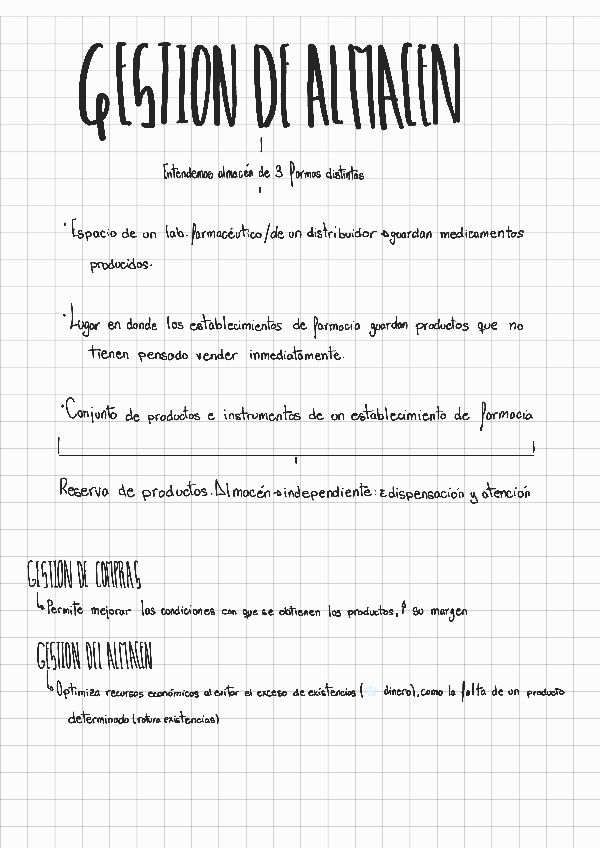 GESTION DE ALMACEN
Entendemos almacén de 3 formas distintas
· Espacio de un lab. farmacéutico/de un distribuidor → guardan medicamentos
producidos.
· Lugar en donde los establecimientos de farmacia guardan productos que no
tienen pensado vender inmediatamente.
· Conjunto de productos e instrumentos de un establecimiento de farmacia
Reserva de productos. Almacén → independiente: ≠ dispensación y atención
GESTION DE COMPRAS
↳ Permite mejorar las condiciones con que se obtienen los productos, ↑ su margen
GESTION DEL ALMACEN
↳ Optimiza recursos económicos al evitar el exceso de existencias ( dinero), como la falta de un producto
determinado (rotura existencias)